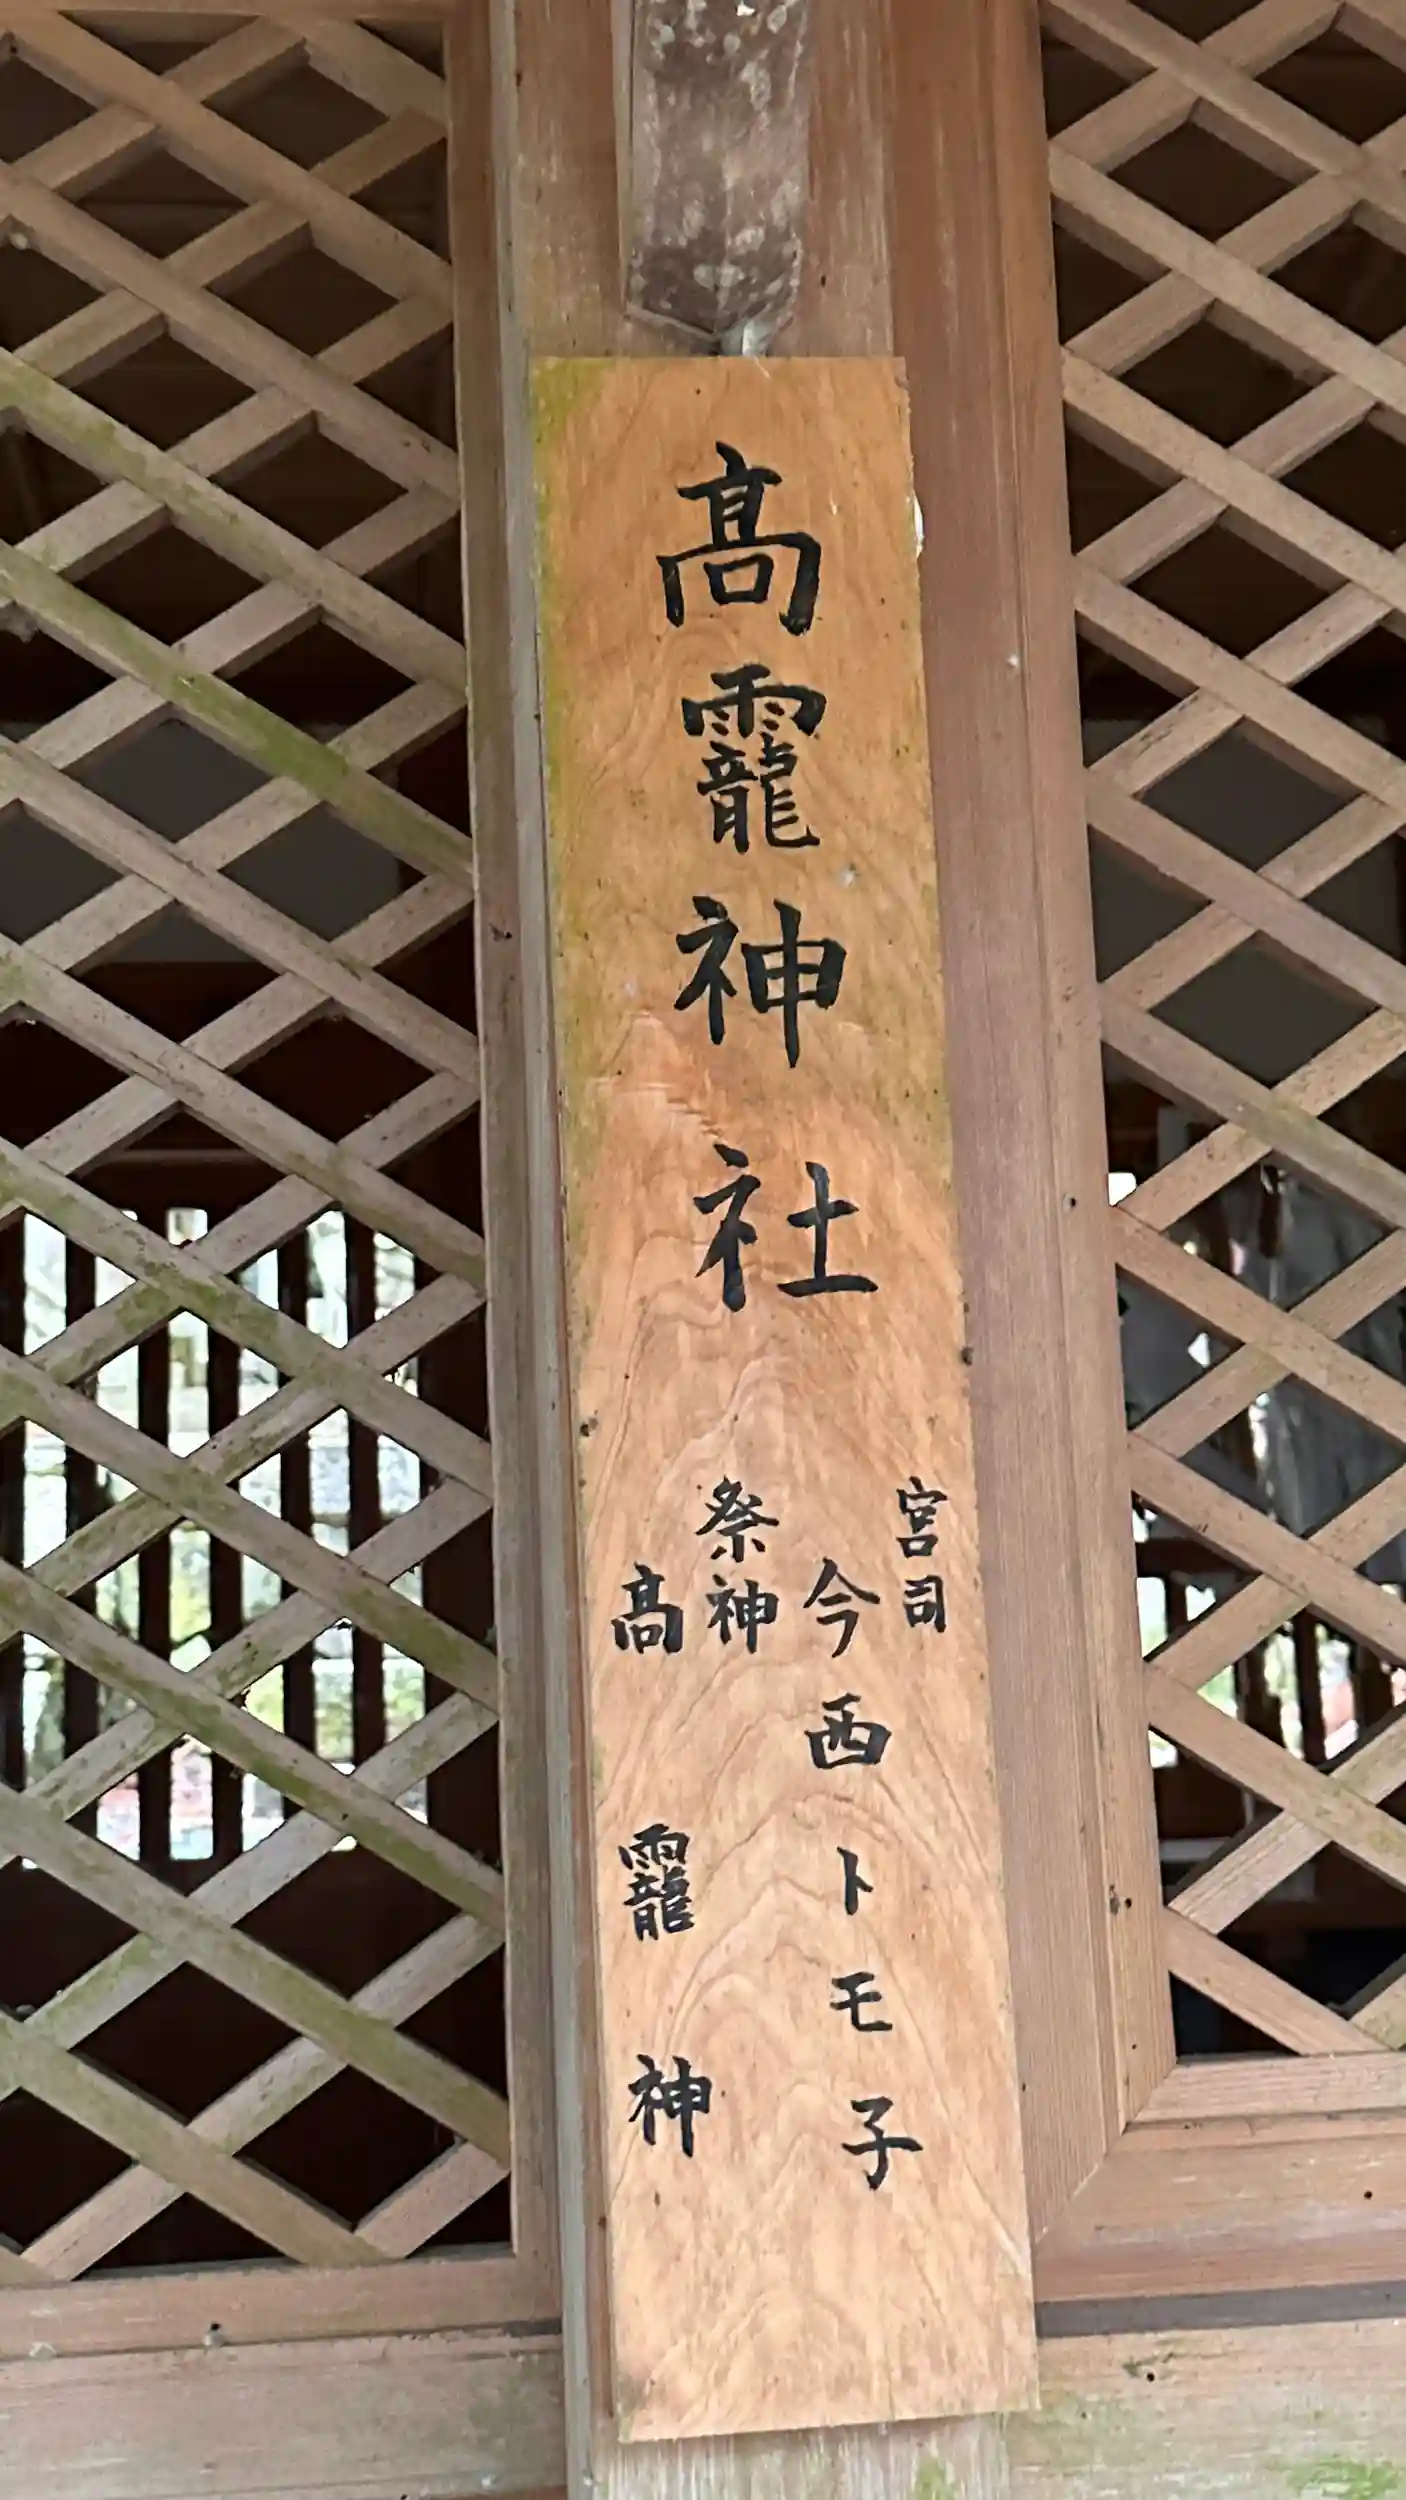 髙龗神社
宮司
今西トモ子
祭神
髙龗神